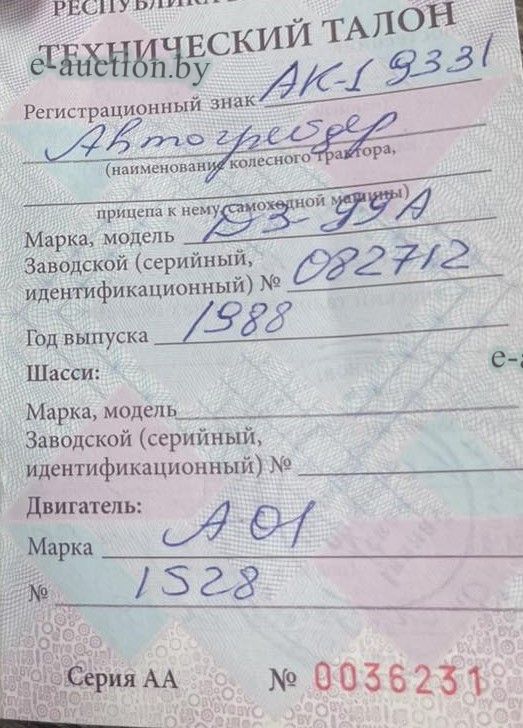 РЕСПУБЛИКА
ТЕХНИЧЕСКИЙ ТАЛОН
e-auction.by
Регистрационный знак АК-1 9331
Автогрейдер
(наименование колесного трактора,
прицепа к нему, самоходной машины)
Марка, модель ДЗ-99А
Заводской (серийный,
идентификационный) № 082712
Год выпуска 1988
e-a
Шасси:
Марка, модель
Заводской (серийный,
идентификационный) №
Двигатель:
Марка А-01
№ 1528
Серия АА № 0036231